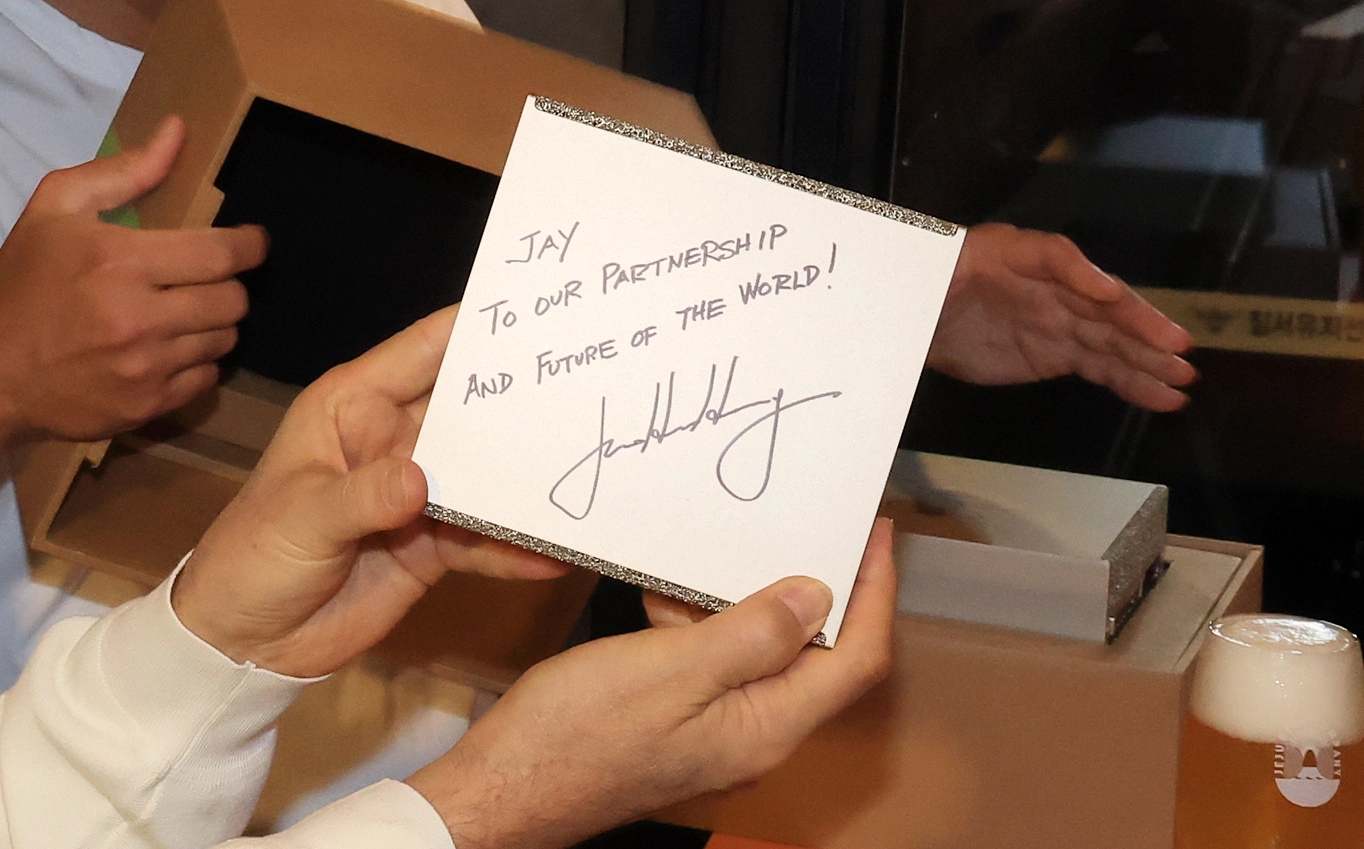 JAY
TO OUR PARTNERSHIP
AND FUTURE OF THE WORLD!
JEJU